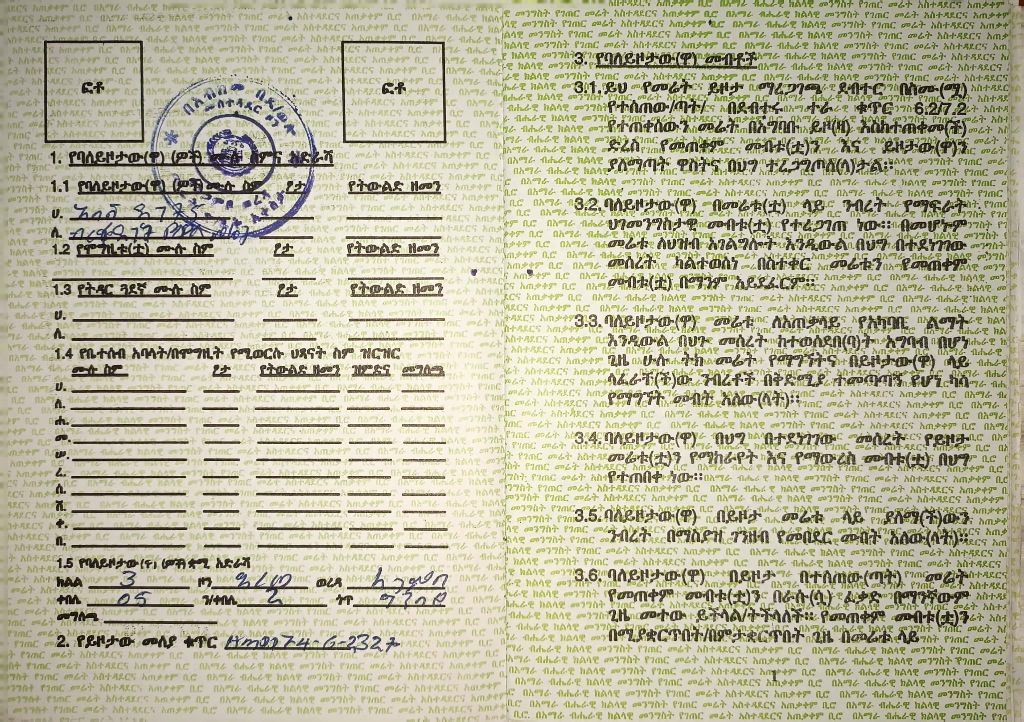 ፎቶ ፎቶ
1. የባለይዞታው(ዋ) (ዎች) ሙሉ ስምና አድራሻ
1.1 የባለይዞታው(ዋ) (ዎች) ሙሉ ስም ፆታ የትውልድ ዘመን
ሀ.
ለ.
1.2 የሞግዚቱ(ቷ) ሙሉ ስም ፆታ የትውልድ ዘመን
1.3 የትዳር ጓደኛ ሙሉ ስም ፆታ የትውልድ ዘመን
ሀ.
ለ.
1.4 የቤተሰብ አባላት/በሞግዚት የሚወርሱ ህጻናት ስም ዝርዝር
ሙሉ ስም ፆታ የትውልድ ዘመን ዝምድና መግለጫ
ሀ.
ለ.
ሐ.
መ.
ሠ.
ረ.
ሰ.
ሸ.
ቀ.
በ.
1.5 የባለይዞታው(ዋ) (ዎች) ቋሚ አድራሻ
ክልል 3 ዞን ወረዳ
ቀበሌ 05 ን/ቀበሌ ጎጥ
መግለጫ
2. የይዞታው መለያ ቁጥር
3. የባለይዞታው(ዋ) መብቶች
3.1. ይህ የመሬት ይዞታ ማረጋገጫ ደብተር በስሙ(ሟ)
የተሰጠው/ጣት/ በደብተሩ ተራ ቁጥር 6.2/7.2
የተጠቀሰውን መሬት በአግባቡ ይዞ(ዛ) እስከተጠቀመ(ች)
ድረስ የመጠቀም መብቱ(ቷ)ን እና ይዞታው(ዋ)ን
ያለማጣት ዋስትና በህግ ተረጋግጦለ(ላ)ታል።
3.2. ባለይዞታው(ዋ) በመሬቱ(ቷ) ላይ ንብረት የማፍራት
ህገመንግስታዊ መብቱ(ቷ) የተረጋገጠ ነው። በመሆኑም
መሬቱ ለህዝብ አገልግሎት እንዲውል በህግ በተደነገገው
መሰረት ካልተወሰነ በስተቀር መሬቱን የመጠቀም
መብቱ(ቷ) በማንም አይደፈርም።
3.3. ባለይዞታው(ዋ) መሬቱ ለአጠቃላይ የአካባቢ ልማት
እንዲውል በህጉ መሰረት ከተወሰደበ(ባ)ት አግባብ በሆነ
ጊዜ ሁሉ ትክ መሬት የማግኘትና በይዞታው(ዋ) ላይ
ላፈራቸ(ች)ው ንብረቶች በቅድሚያ ተመጣጣኝ የሆነ ካሳ
የማግኘት መብት አለው(ላት)።
3.4. ባለይዞታው(ዋ) በህግ በተደነገገው መሰረት የይዞታ
መሬቱ(ቷ)ን የማከራየት እና የማውረስ መብቱ(ቷ) በህግ
የተጠበቀ ነው።
3.5. ባለይዞታው(ዋ) በይዞታ መሬቱ ላይ ያለማ(ች)ውን
ንብረት በማስያዝ ገንዘብ የመበደር መብት አለው(ላት)።
3.6. ባለይዞታው(ዋ) በይዞታ በተሰጠው(ጣት) መሬት
የመጠቀም መብቱ(ቷ)ን በራሱ(ሷ) ፈቃድ በማንኛውም
ጊዜ መተው ይችላል/ትችላለች። የመጠቀም መብቱ(ቷ)ን
በሚያቋርጥበት/በምታቋርጥበት ጊዜ በመሬቱ ላይ
1